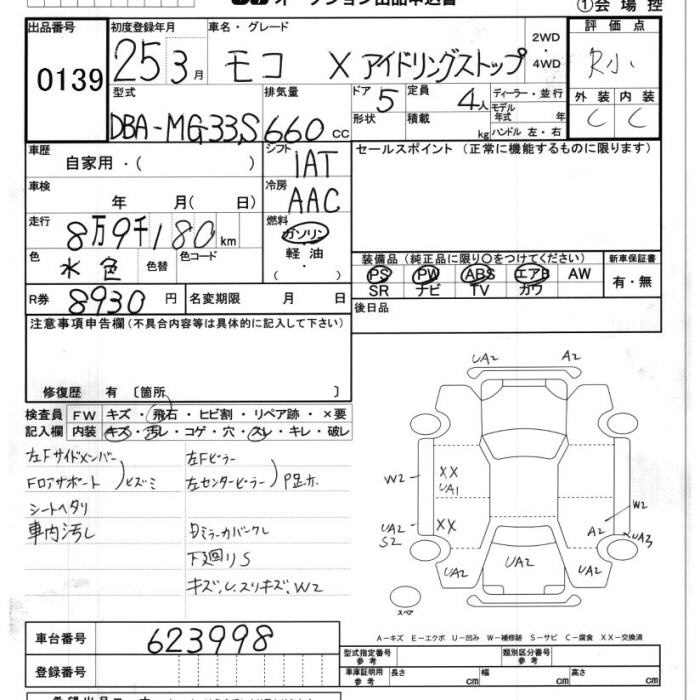 オークション出品申込書
①会場控
出品番号 0139
初度登録年月 25 3月
車名・グレード モコ X アイドリングストップ
2WD・4WD
評価点 R小
型式 DBA-MG33S
排気量 660 cc
ドア 5 形状
定員 4人 積載 kg
ディーラー・並行
モデル年式 年
ハンドル 左・右
外装 C 内装 C
車歴 自家用・( )
シフト IAT
セールスポイント (正常に機能するものに限ります)
車検 年 月( 日)
冷房 AAC
走行 8万9千180km
燃料 ガソリン 軽油 ・( )
色 水色 色替 色コード
装備品 (純正品に限り○をつけてください)
PS PW ABS エアB AW
SR ナビ TV カワ
新車保証書 有・無
R券 8930円 名変期限 月 日
後日品
注意事項申告欄(不具合内容等は具体的に記入して下さい)
修復歴 有 〔箇所 〕
検査員記入欄
FW キズ・飛石・ヒビ割・リペア跡・×要
内装 キズ・汚レ・コゲ・穴・スレ・キレ・破レ
左Fサイドメンバー
Fロアサポート )ヒズミ
シートヘタリ
車内汚レ
左Fピラー
左センターピラー )P足カ
ミラーカバークレ
下廻りS
キズ、レ、スリキズ、W2
UA2 A2
W2 XX UA1
UA2 S2 XX
W2
A2 UA3
UA2 UA2 UA2
スペア
A-キズ E-エクボ U-凹み W-補修跡 S-サビ C-腐食 XX-交換済
車台番号 623998
登録番号
型式指定番号 参考 類別区分番号 参考
車庫証明用 参考 長さ cm 幅 cm 高さ cm